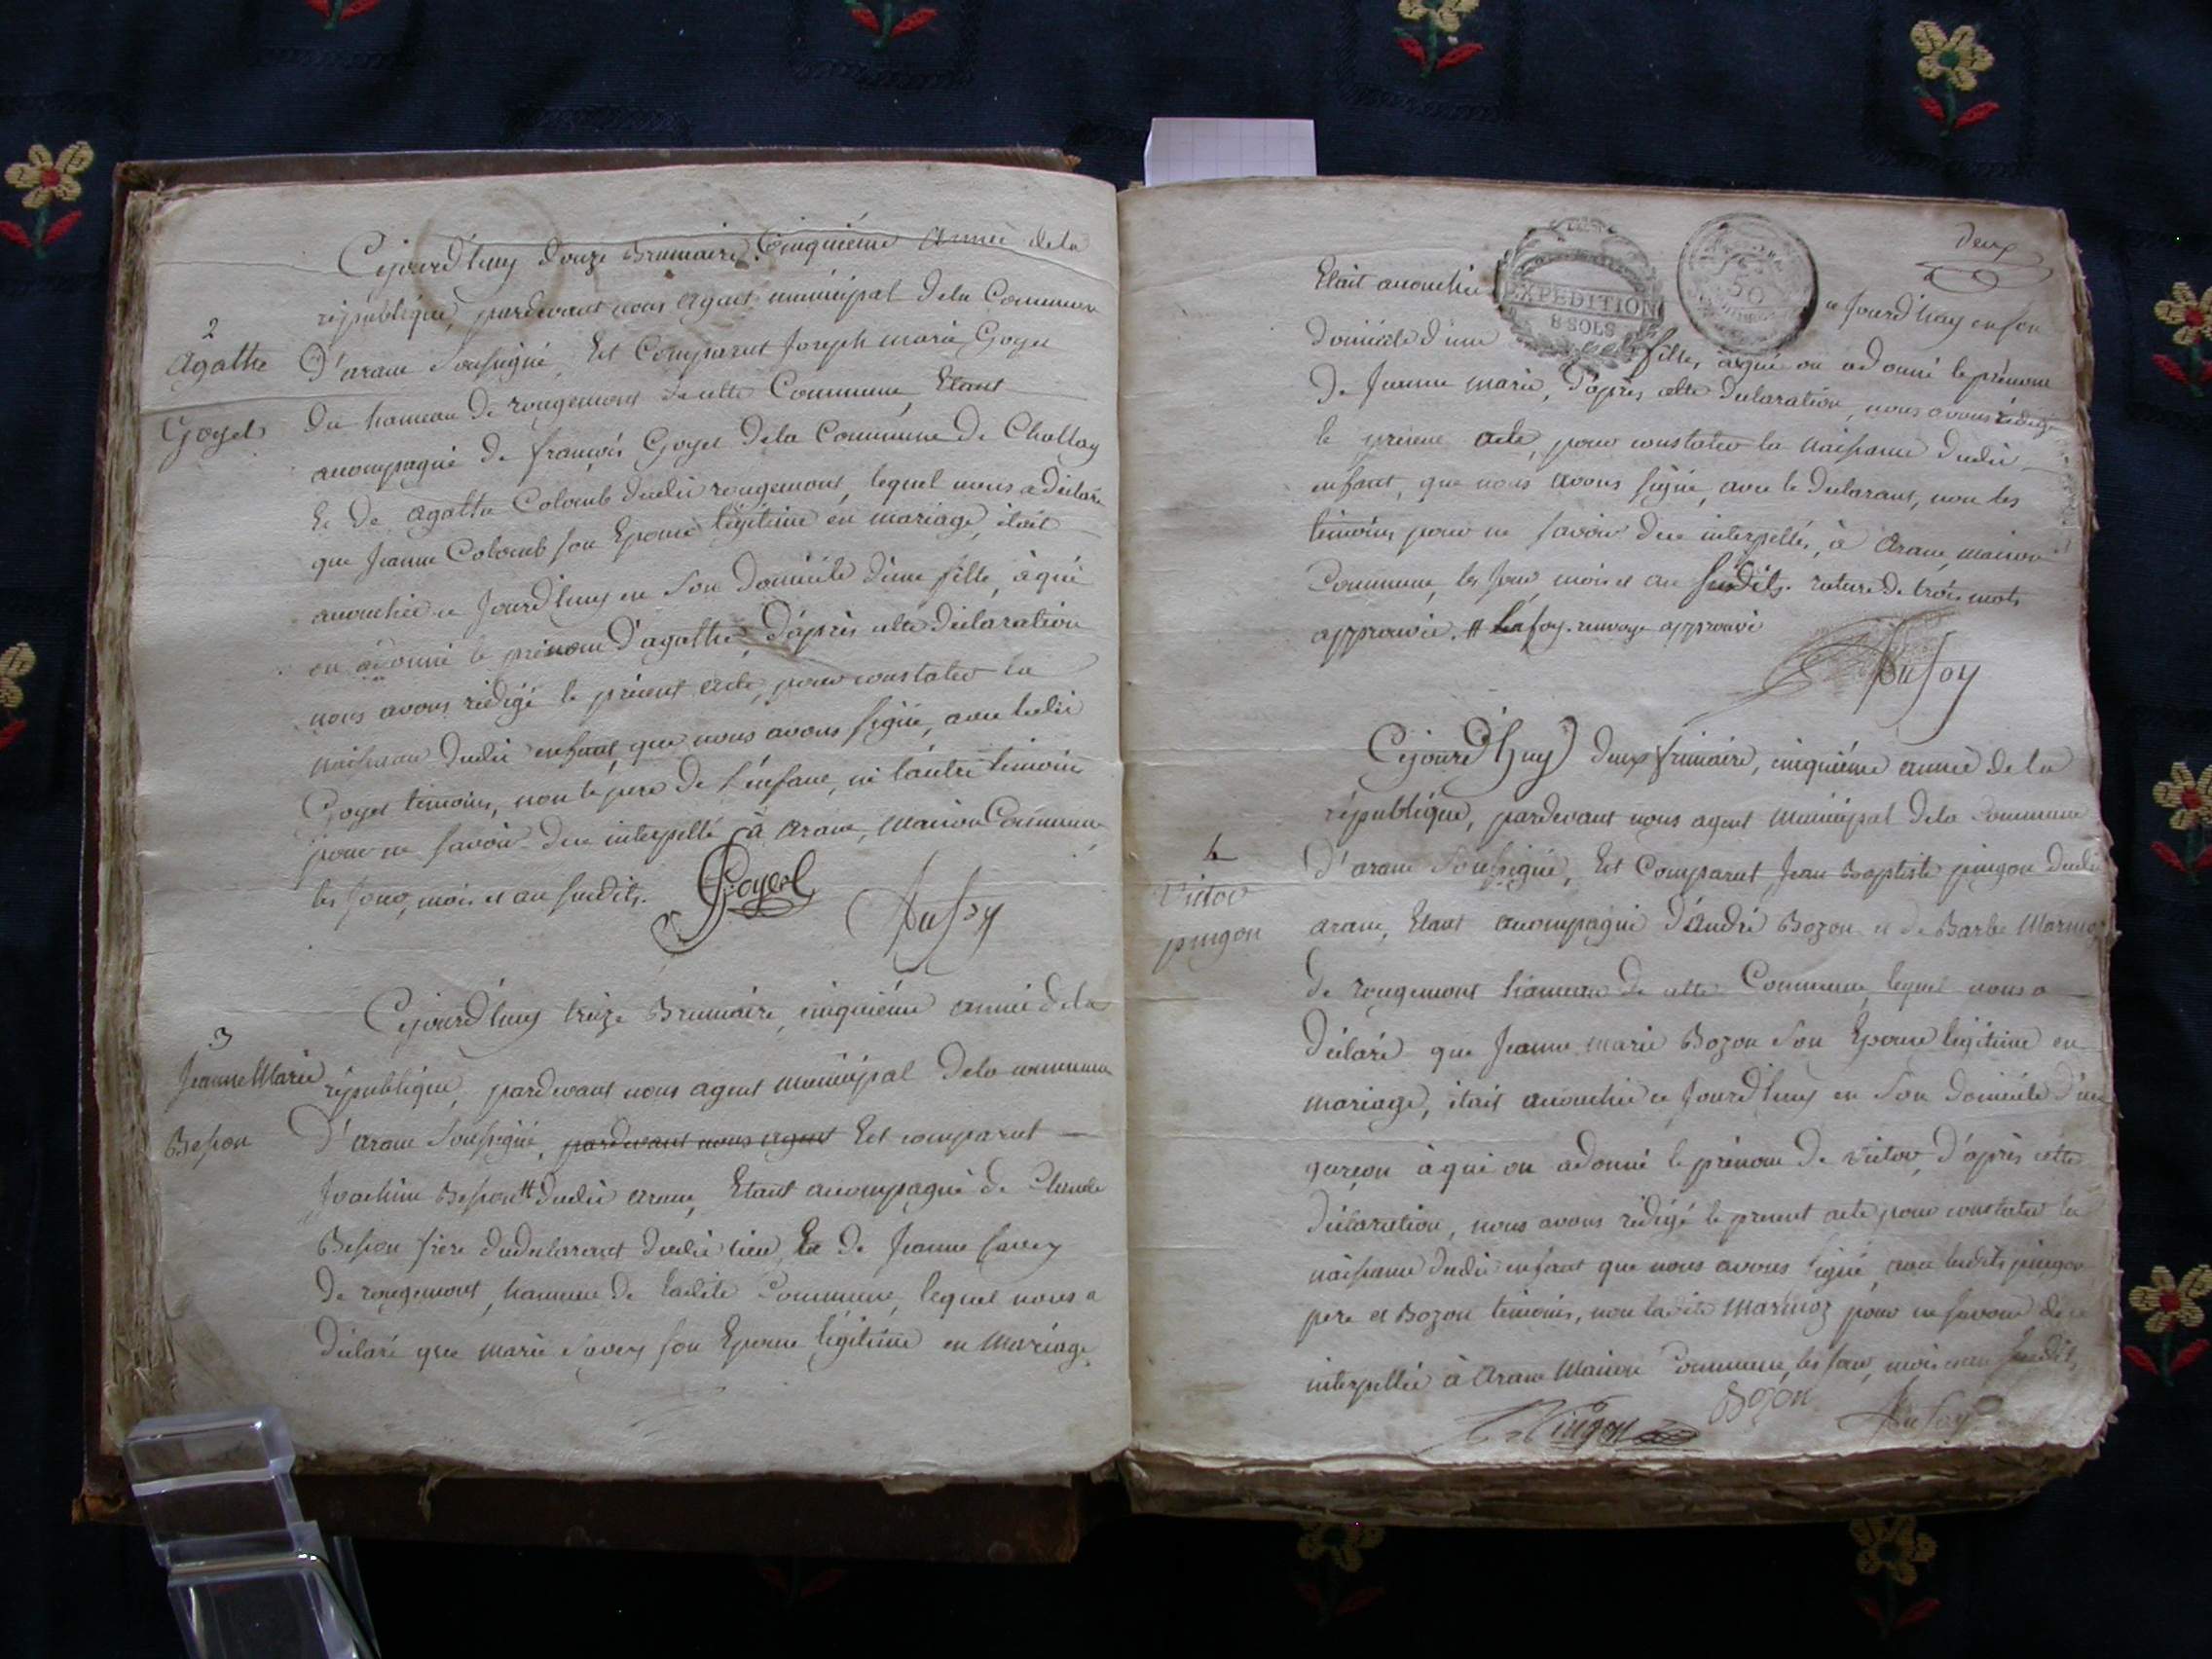 Cejourd'huy douze Brumaire Cinquiéme Année dela
république, pardevant nous agent municipal dela Commune
2
Agathe
Goyet
D'arane Soussigné, Est Comparut Joseph marie Goyet
du hameau de rougemont de cette Commune, Etant
acompagné de françois Goyet dela Commune de Challay
Et de agathe Colomb dudit rougemont, lequel nous a déclaré
que Jeanne Colomb son Epouse légitime en mariage, était
acouchée ce Jourd'huy en Son Domicile d'une fille, à qui
on a donné le prénom d'agathe, D'après cette déclaration
nous avons rédigé le présent acte, pour constater la
naissance dudit enfant, que nous avons signé, avec ledit
Goyet témoins, non le pere de l'enfant, ni l'autre témoins
pour ne savoir de ce interpellé à arane, maison Commune,
les jour, mois et an susdits.
Goyet
Dufoy
Cejourd'huy treize Brumaire, cinquiéme année dela
3
Jeanne Marie
Besson
république, pardevant nous agent municipal dela commune
D'arane Soussigné, pardevant nous agent Est comparut
Joachim Besson # dudit arane, Etant acompagné de Claude
Besson frère dudéclarant dudit lieu, Et de Jeanne Savey
de rougemont, hameau de ladite Commune, lequel nous a
déclaré que marie Savey son Epouse légitime en Mariage
deux
EXPEDITION
8 SOLS
50
Etait acouchée ce Jourd'huy en son
domicile d'une fille, a qui on a donné le prénom
de Jeanne marie, D'après cette déclaration, nous avons rédigé
le présent acte, pour constater la naissance dudit
enfant, que nous avons signé, avec le déclarant, non les
témoins pour ne savoir de ce interpellés, à Arane, maison
Commune, les jour, mois et an susdits. rature de trois mots
approuvée. # renvoye approuvé
Dufoy
Cejourd'huy deux frimaire, cinquiéme année de la
république, pardevant nous agent Municipal dela Commune
4
Victor
pingon
D'arane Soussigné, Est Comparut Jean Baptiste pingon dudit
arane, Etant acompagné d'André Bozon et de Barbe Marinoz
de rougemont hameau de cette Commune, lequel nous a
déclaré que Jeanne marie Bozon Son Epouse légitime en
mariage, était acouchée ce Jourd'huy en Son domicile d'un
garçon à qui on a donné le prénom de victor, D'après cette
déclaration, nous avons rédigé le present acte pour constater la
naissance dudit enfant que nous avons signé, avec lesdits pingon
pere et Bozon témoins, non ladite Marinoz pour ne savoir de ce
interpellée à Arane Maison Commune, les jour, mois et an susdits,
Pingon
Bozon
Dufoy